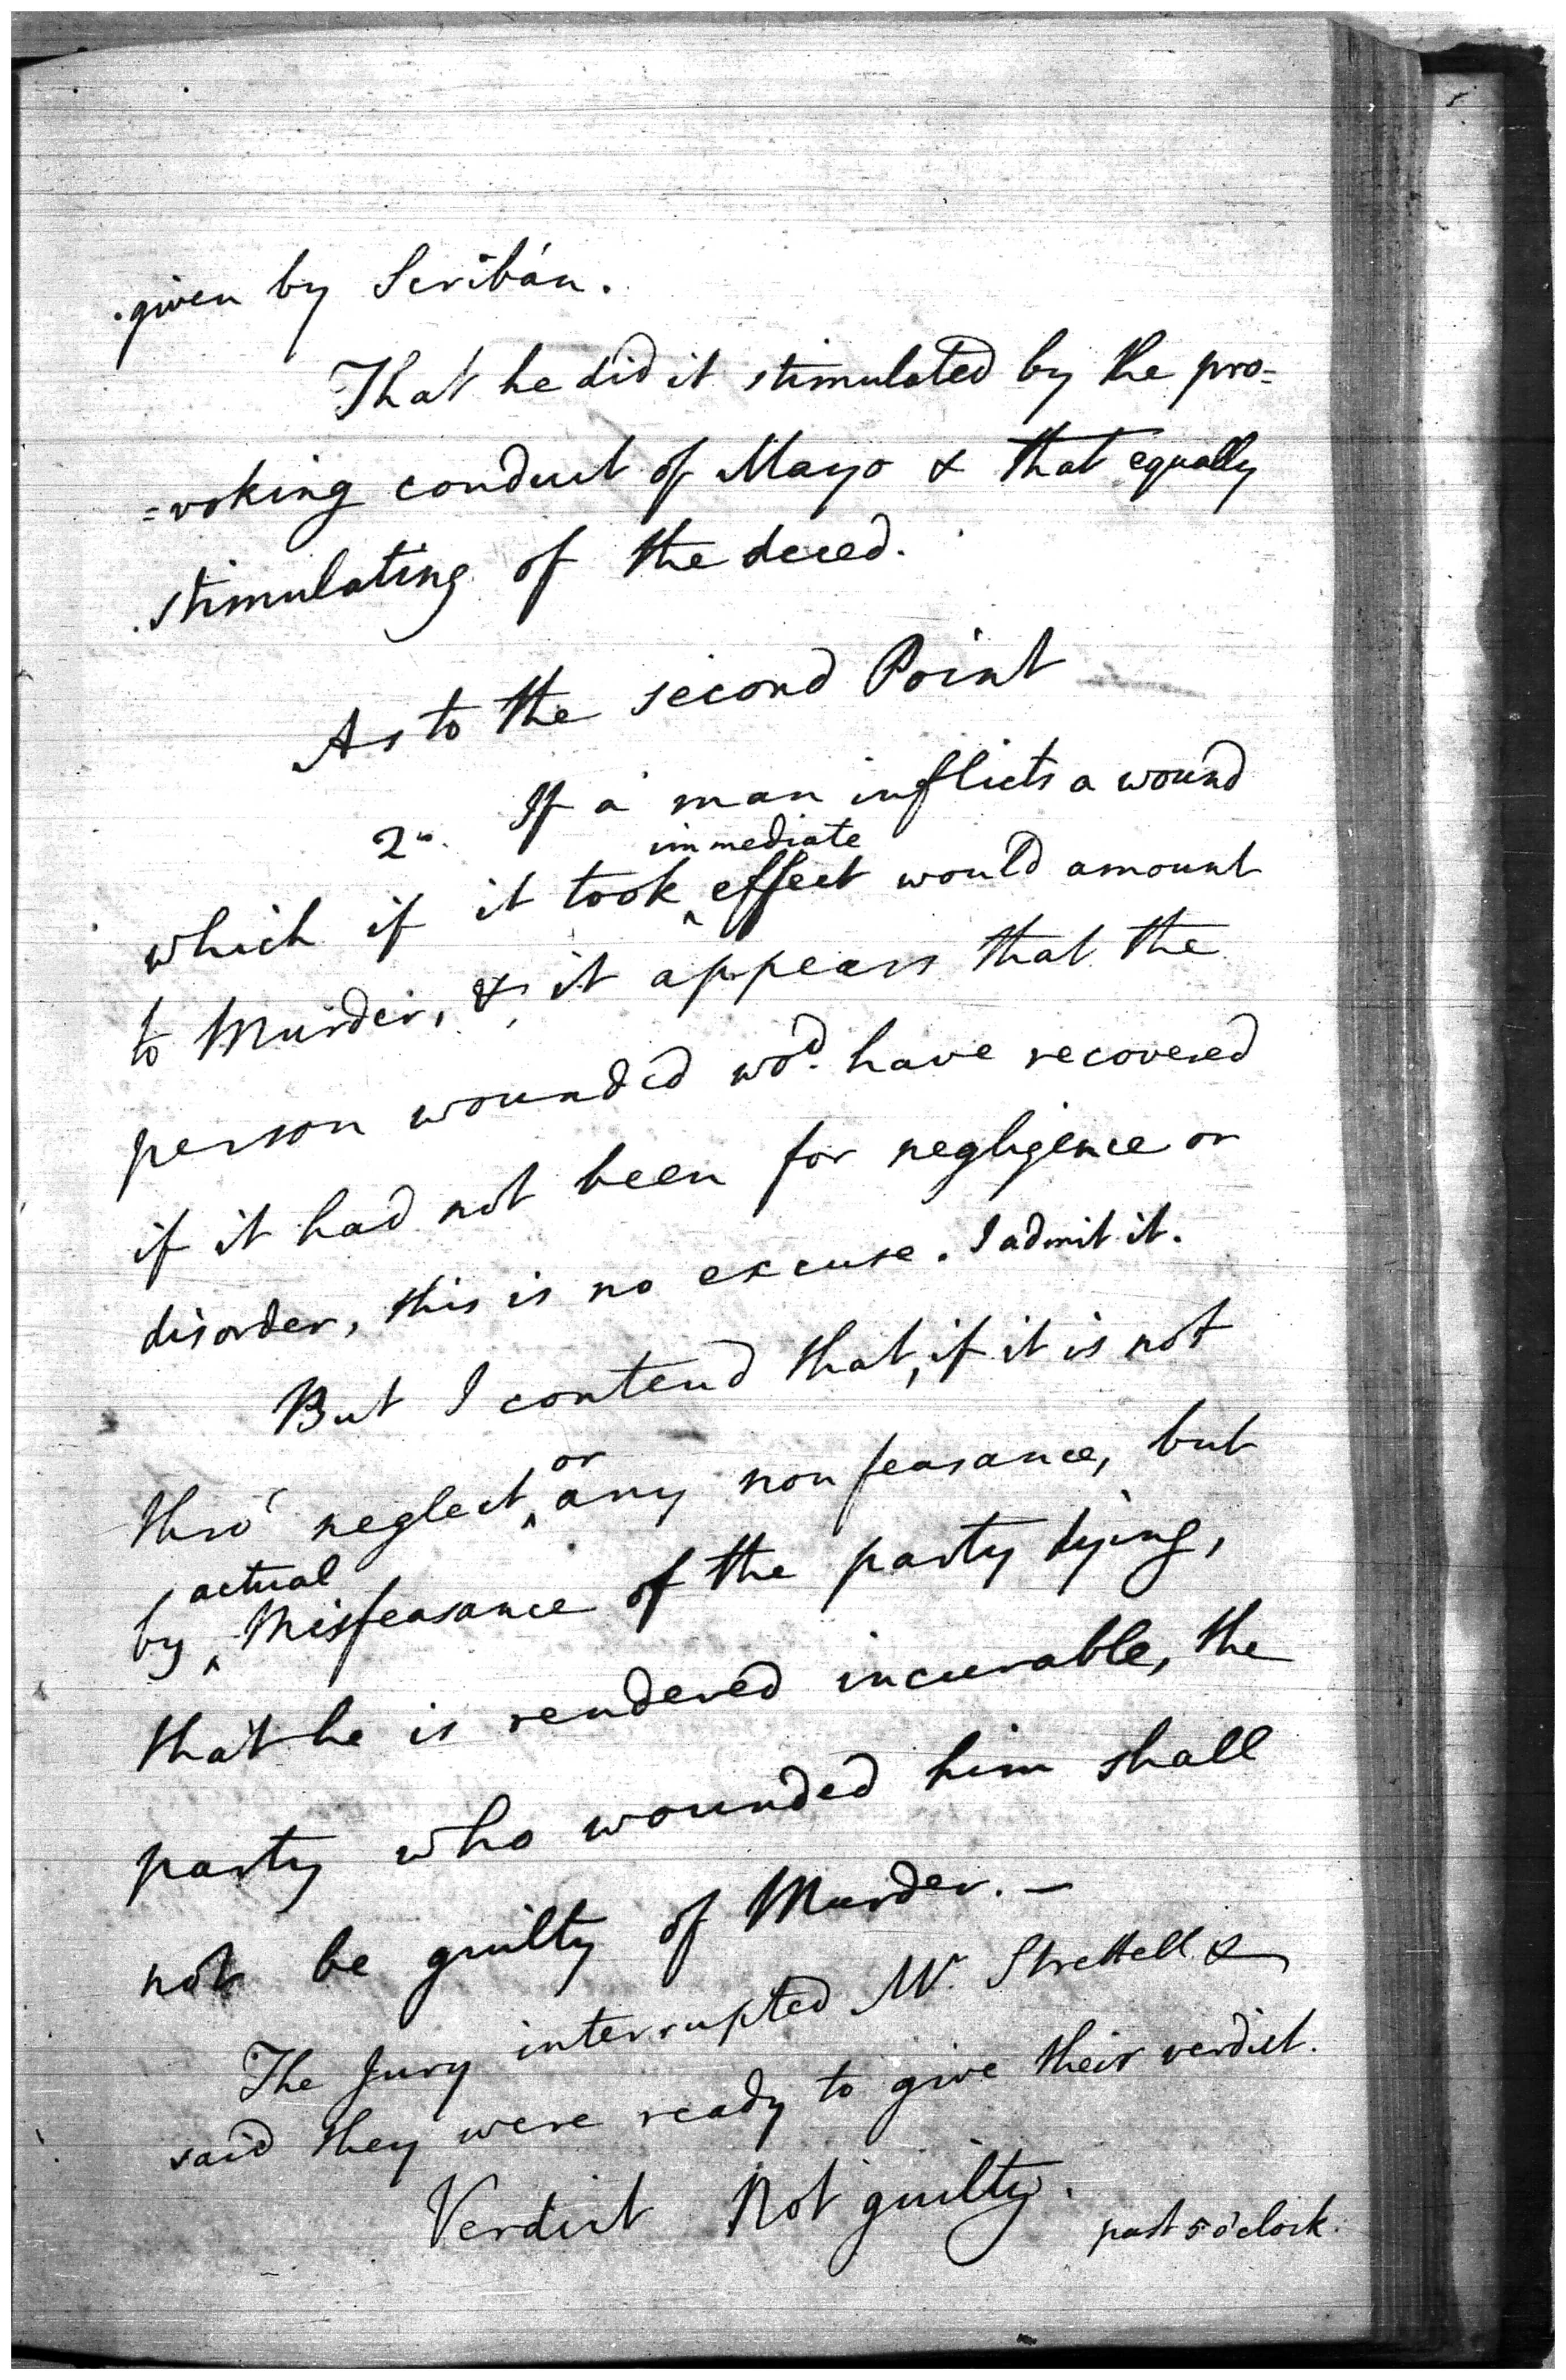 given by Seribán.
That he did it stimulated by the pro=
=voking conduct of Mayo & that equally
stimulating of the deced.
As to the second Point
2ⁿ. If a man inflicts a wound
immediate
which if it took ‸ effect would amount
to Murder, & it appears that the
person wounded woᵈ. have recovered
if it had not been for negligence or
disorder, this is no excuse. I admit it.
But I contend that, if it is not
or
thro' neglect, ‸ any nonfeasance, but
actual
by ‸ Misfeasance of the party dying,
that he is rendered incurable, the
party who wounded him shall
not be guilty of Murder. —
The Jury interrupted Mr. Strettell &
said they were ready to give their verdict.
Verdict Not guilty.
past 5 o'clock.